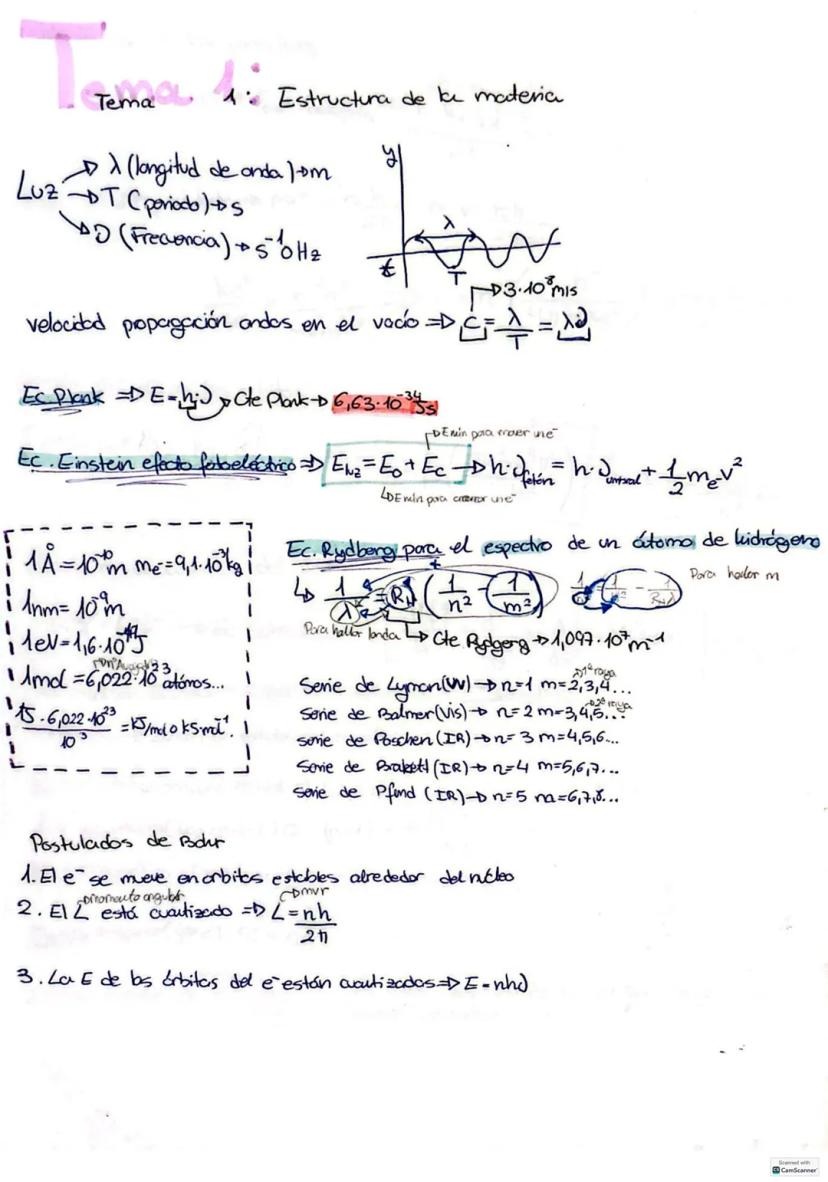 Tema 1:
Tema 1: Estructura de la materia
Luz → λ (longitud de onda) → m
→ T (periodo) → s
→ ν (Frecuencia) → s⁻¹ o Hz
y
λ
t
T
→ 3·10⁸ m/s
velocidad propagación ondas en el vacío ⇒ c = λ/T = λν
Ec. Plank ⇒ E = h·ν → Cte Plank → 6,63·10⁻³⁴ Js
→ E min para mover un e⁻
Ec. Einstein efecto fotoeléctrico ⇒ E luz = E₀ + Ec → h·ν fotón = h·ν umbral + 1/2 mₑ v²
→ E min para arrancar un e⁻
1 Å = 10⁻¹⁰ m me⁻ = 9,1·10⁻³¹ kg
1nm = 10⁻⁹ m
1eV = 1,6·10⁻¹⁹ J
→ nº Avogadro
1mol = 6,022·10²³ átomos...
15·6,022·10²³ / 10³ = KJ/mol o KJ mol⁻¹.
Ec. Rydberg para el espectro de un átomo de hidrógeno
↳ 1/λ = R_H (1/n² - 1/m²)
Para hallar m
Para hallar landa → Cte Rydgerg → 1,097·10⁷ m⁻¹
→ 1ª raya
Serie de Lyman (UV) → n=1 m=2,3,4...
→ 2ª raya
Serie de Balmer (Vis) → n=2 m=3,4,5...
serie de Paschen (IR) → n=3 m=4,5,6...
Serie de Brakett (IR) → n=4 m=5,6,7...
Serie de Pfund (IR) → n=5 m=6,7,8...
Postulados de Bohr
1. El e⁻ se mueve en orbitas estables alrededor del núcleo
→ momento angular → mvr
2. El L está cuantizado ⇒ L = nh/2π
3. La E de las órbitas del e⁻ están cuantizadas ⇒ E = nhν
Scanned with
CamScanner